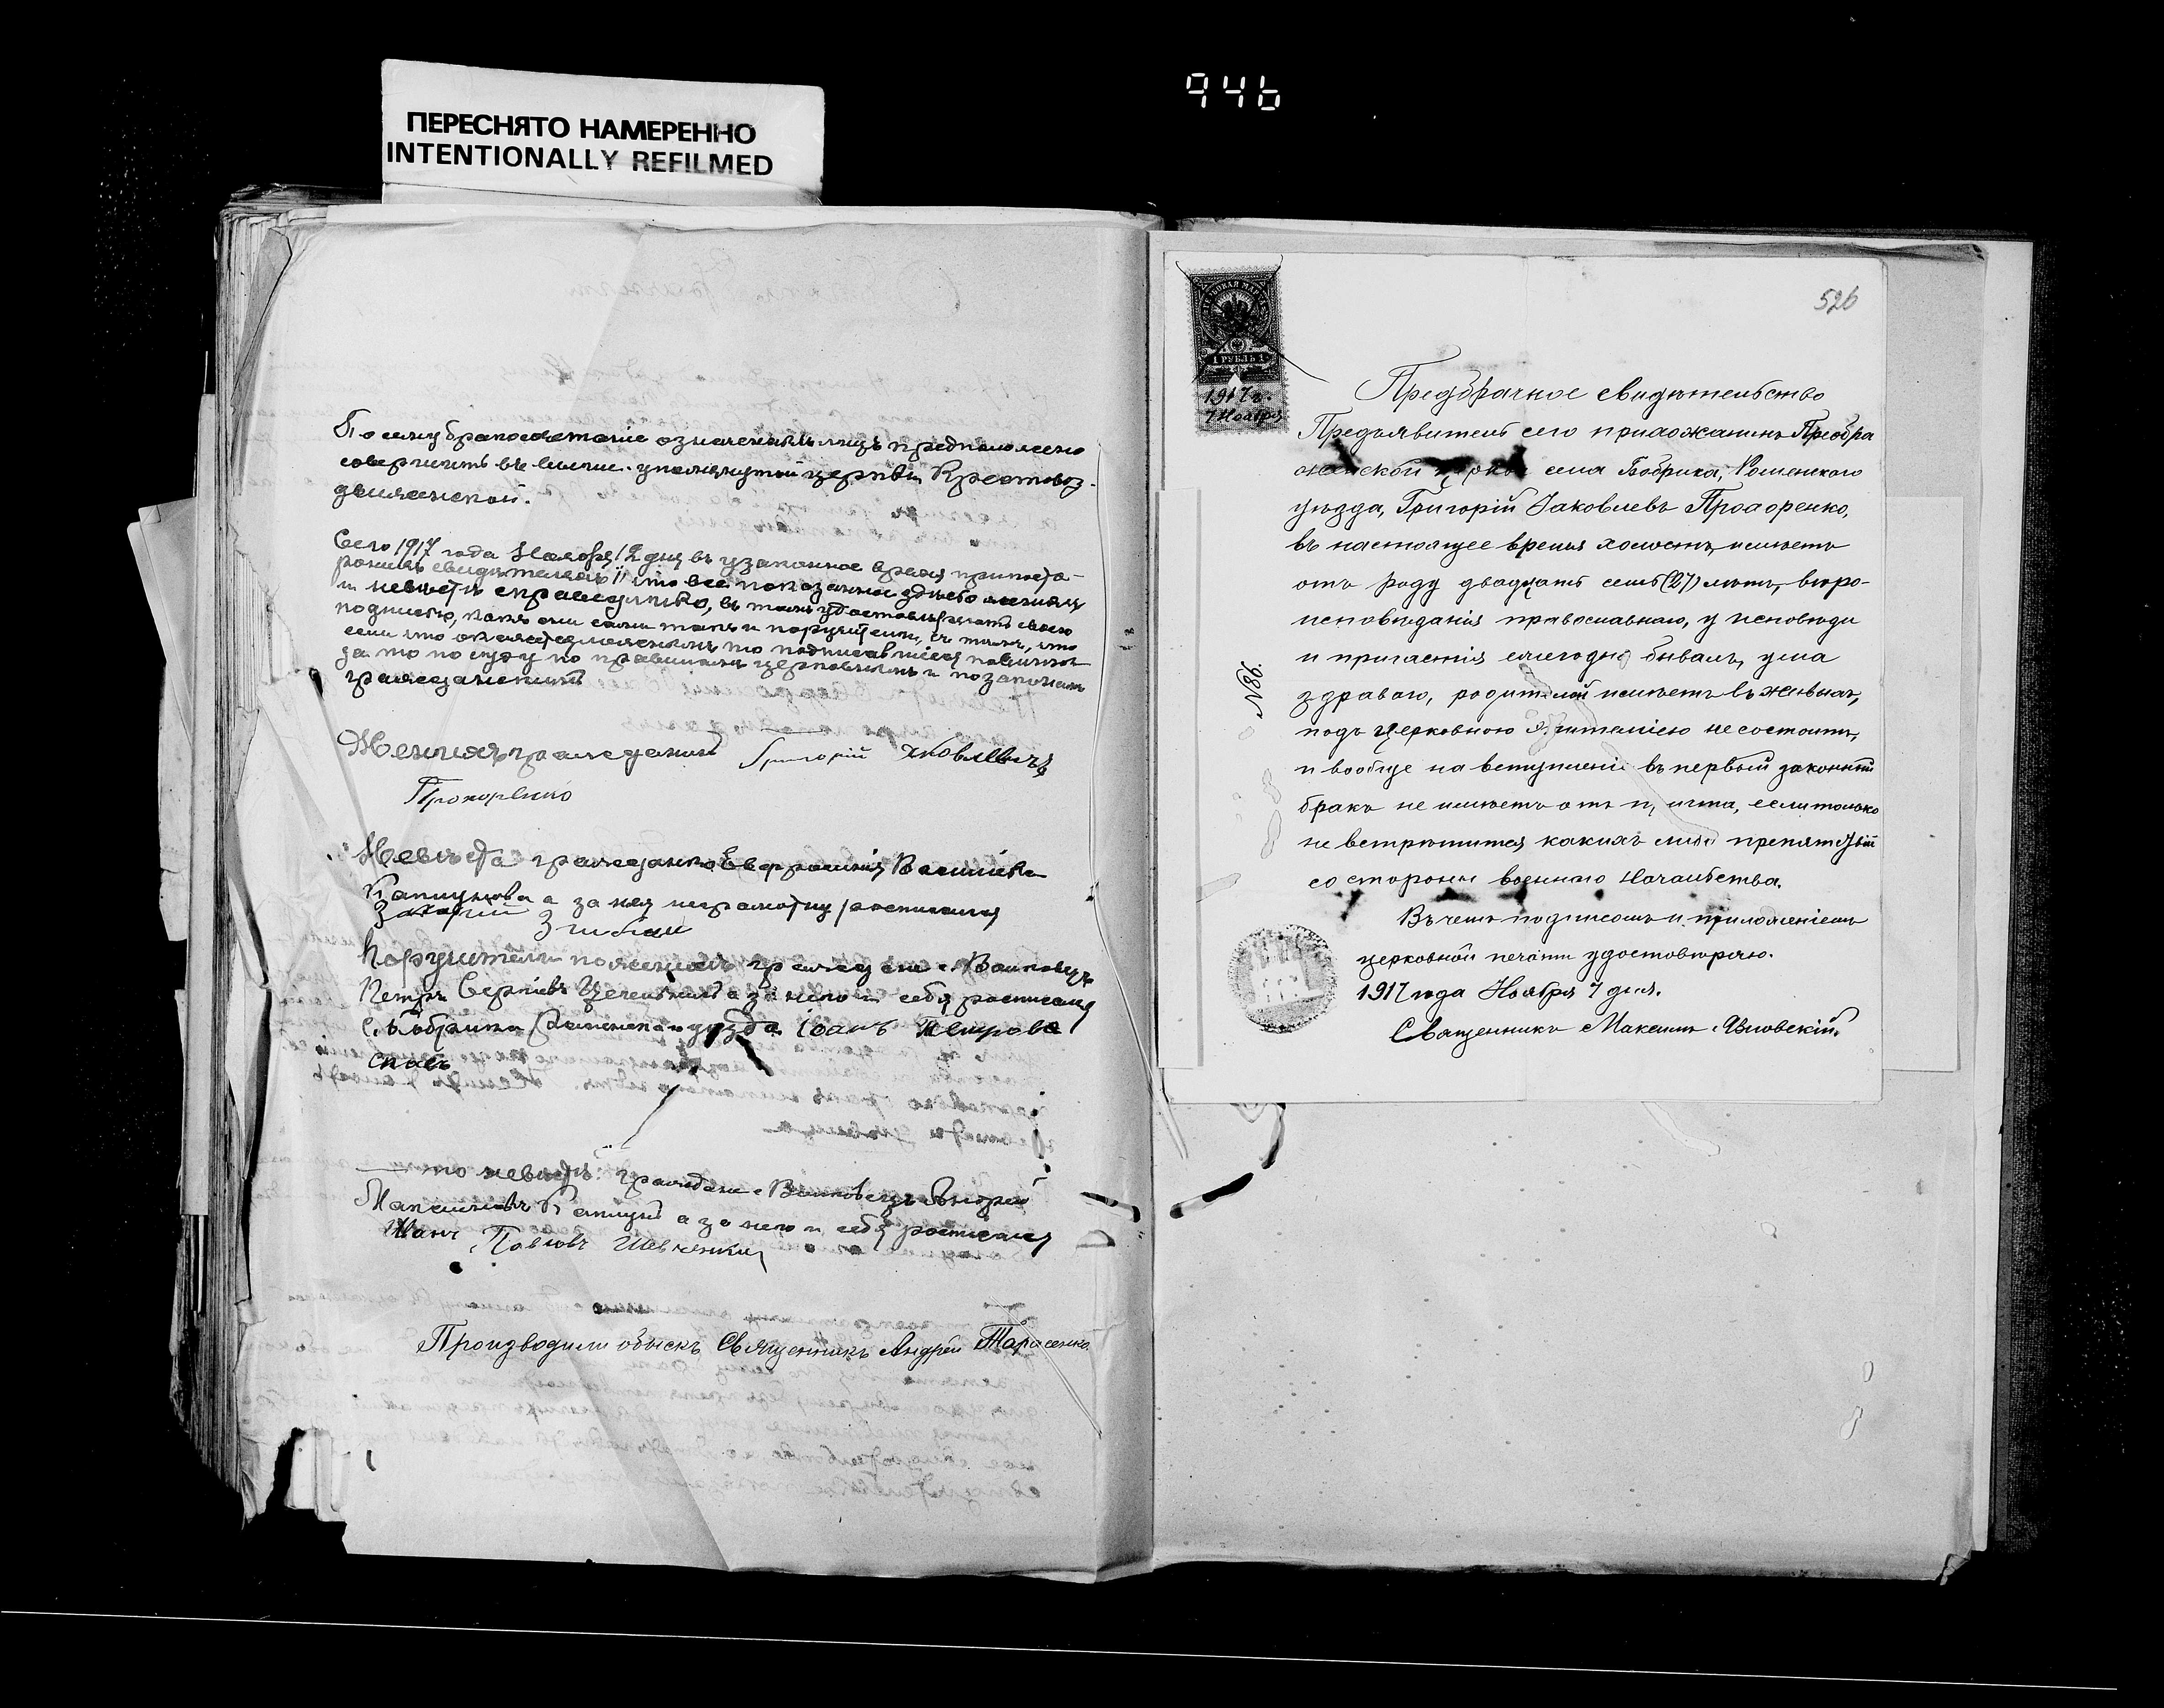 ПЕРЕСНЯТО НАМЕРЕННО
INTENTIONALLY REFILMED
946
По сему бракосочетаніе означенныхъ лицъ предположено
совершить въ выше упомянутой церкви Крестовоз-
движенской.
Сего 1917 года Ноября 12 дня въ узаконное время при посто-
роннихъ свидѣтеляхъ и что все показанное здѣсь о женихѣ
и невѣстѣ справедливо, въ томъ удостовѣряютъ своею
подписью, какъ они сами такъ и поручители, съ тѣмъ, что
если что окажется ложнымъ то подписавшіеся повинны
за то по суду по правиламъ церковнымъ и по законамъ
гражданскимъ
Женихъ гражданинъ Григорій Яковлевичъ
Прохоренко
Невѣста гражданка Евфросинія Василіева
Капцунова а за нея неграмотну росписался
Захарій
Поручители по женихѣ граждане с. Волковецъ
Петръ Сергіевъ а за него и себя росписался
с. Бобрика Роменскаго уѣзда Іоанъ Петровъ
по невѣстѣ граждане с. Волковецъ Андрей
Максимовъ Капцунъ а за него и себя росписался
Иванъ Павловъ Шевченко
Производили обыскъ Священникъ Андрей Тарасенко
526
ГЕРБОВАЯ МАРКА
1 РУБЛЬ 1
1917 г.
7 Ноября
Предбрачное свидѣтельство
Предъявитель сего прихожанинъ Преобра
женской церкви села Бобрика, Роменскаго
уѣзда, Григорій Іаковлевъ Прохоренко,
въ настоящее время холостъ, имѣетъ
отъ роду двадцать семь (27) лѣтъ, вѣро-
исповѣданія православнаго, у исповѣди
и причастія ежегодно бывалъ, ума
здраваго, родителей имѣетъ въ живыхъ,
подъ церковною эпитеміею не состоитъ,
и вообще на вступленіе въ первый законный
бракъ не имѣетъ отъ п, ичта, если только
не встрѣтится какихъ либо препятствій
со стороны военнаго Начальства.
Въ чемъ подписомъ и приложеніемъ
церковной печати удостовѣряю.
1917 года Ноября 7 дня.
Священникъ Максимъ
№ 86.